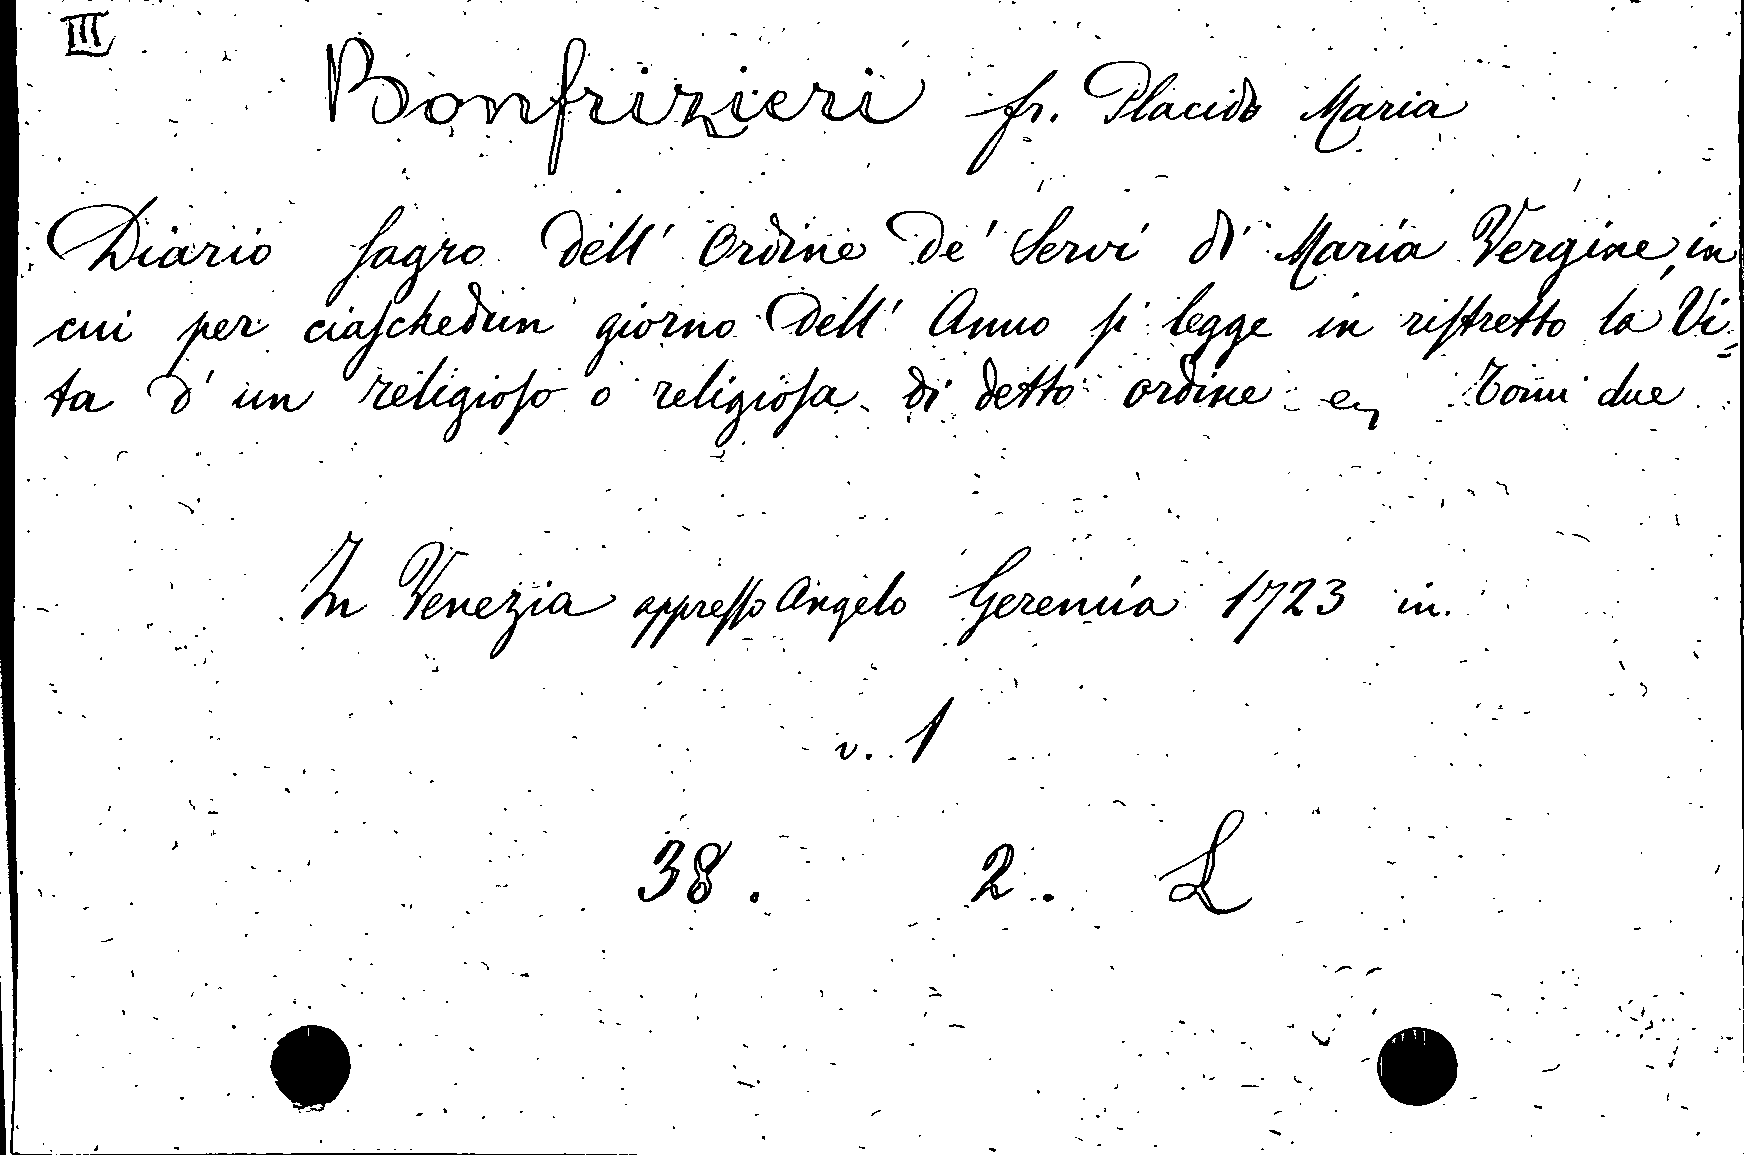 III
Bonfrizieri fr. Placido Maria
Diario ſagro dell' Ordine de' Servi di Maria Vergine, in
cui per ciaſchedun giorno dell' Anno ſi legge in riſtretto la Vi=
ta d' un religioſo o religioſa di detto ordine Tomi due
In Venezia appreſſo Angelo Geremia 1723 in.
v. 1
38. 2. L